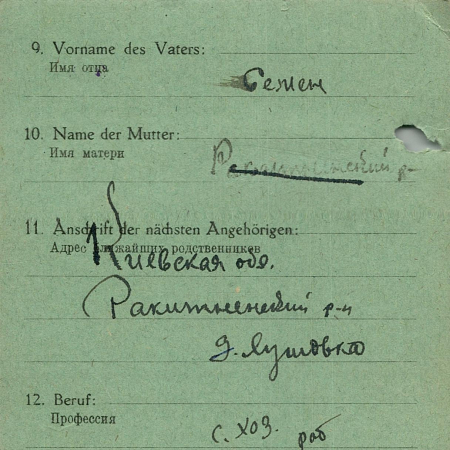 9. Vorname des Vaters:
Имя отца
Семен
10. Name der Mutter:
Имя матери
Ракитненский р-
11. Anschrift der nächsten Angehörigen:
Адрес ближайших родственников
Киевская обл.
Ракитненский р-н
д.
12. Beruf:
Профессия
с. хоз. раб